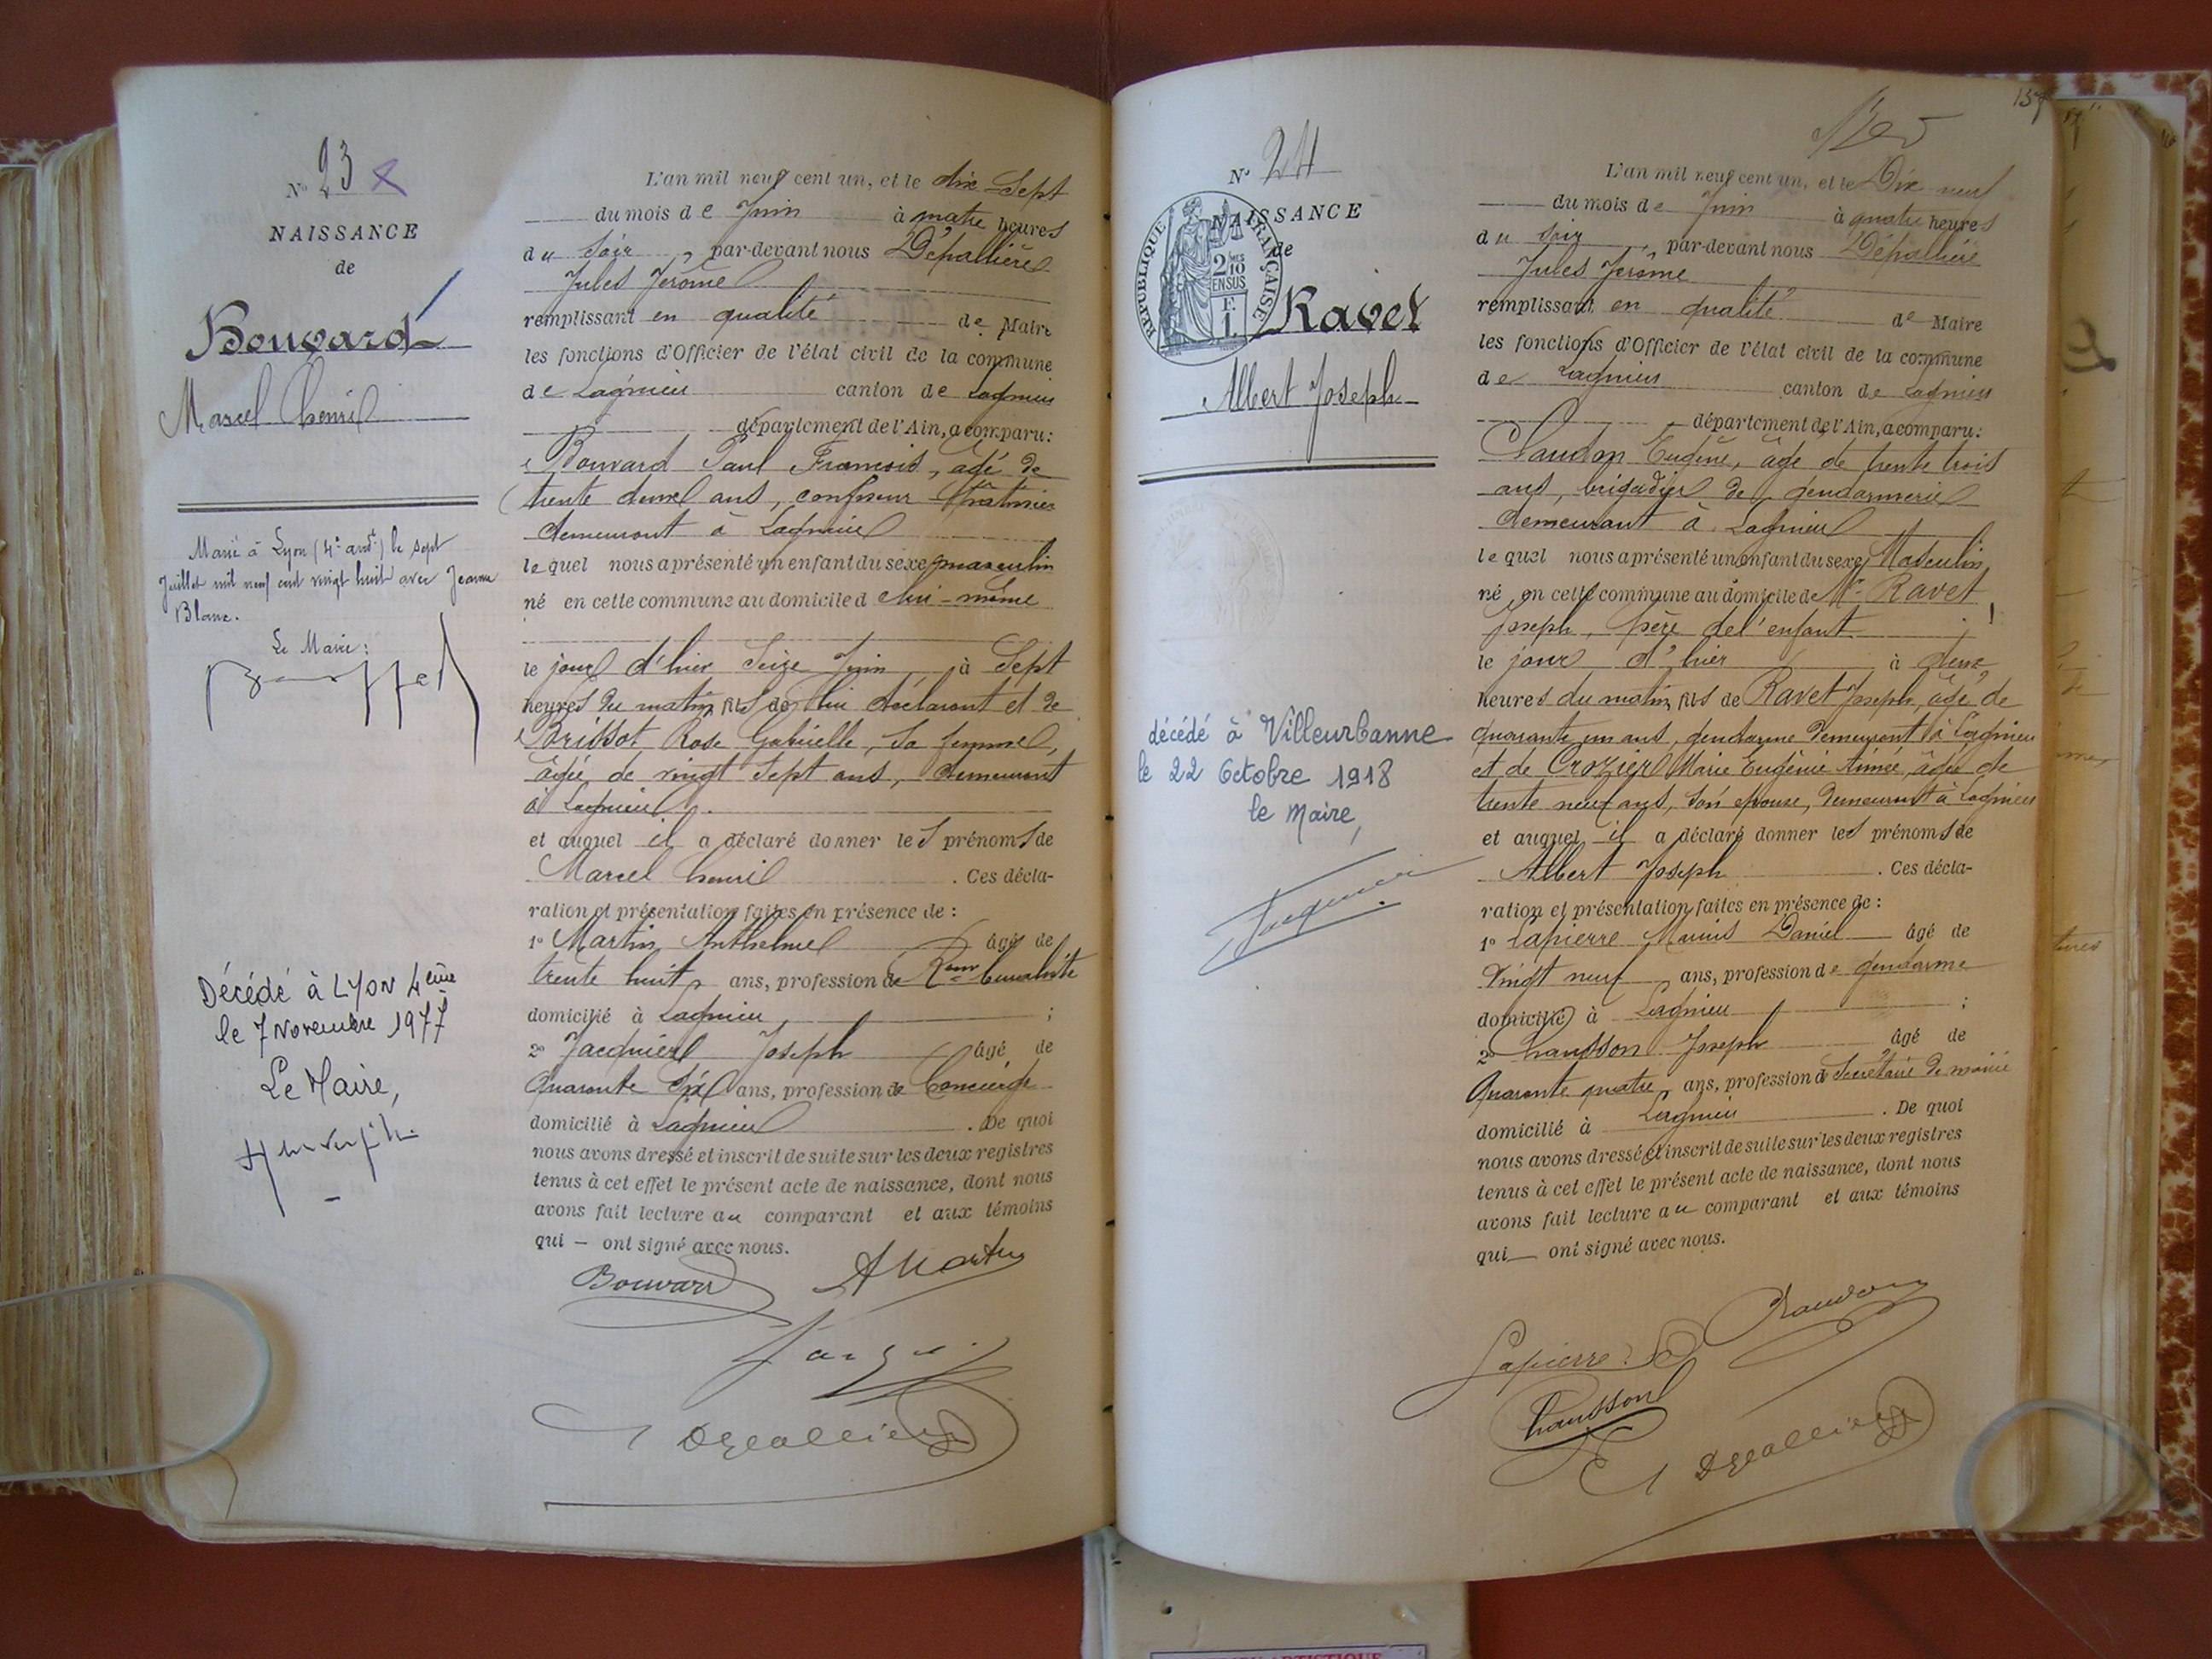 N° 23
NAISSANCE
de
Bouvard
Marcel henri
Marié à Lyon (4e arrt) le sept
Juillet mil neuf cent vingt huit avec Jeanne
Blanc.
Le Maire:
Décédé à LYON 4ème
le 7 Novembre 1977
Le Maire,
L'an mil neuf cent un, et le dix-Sept
du mois de Juin à quatre heures
du Soir, par-devant nous Dépallière
Jules Jérôme
remplissant en qualité de Maire
les fonctions d'Officier de l'état civil de la commune
de Lagnieu canton de Lagnieu
département de l'Ain, a comparu:
Bouvard Paul François, âgé de
trente deux ans, confiseur
demeurant à Lagnieu
lequel nous a présenté un enfant du sexe masculin
né en cette commune au domicile de lui-même
le jour d'hier Seize Juin à Sept
heures du matin, fils de lui déclarant et de
Brissot Rose Gabrielle, Sa femme,
âgée de vingt Sept ans, demeurant
à Lagnieu.
et auquel il a déclaré donner les prénoms de
Marcel henri. Ces décla-
ration et présentation faites en présence de:
1° Martin Anthelme âgé de
trente huit ans, profession de
domicilié à Lagnieu;
2° Jacquier Joseph âgé de
Quarante Six ans, profession de Concierge
domicilié à Lagnieu. De quoi
nous avons dressé et inscrit de suite sur les deux registres
tenus à cet effet le présent acte de naissance, dont nous
avons fait lecture au comparant et aux témoins
qui — ont signé avec nous.
Bouvard A Martin
Depallière
137
N° 24
NAISSANCE
de
REPUBLIQUE FRANÇAISE
2/10 EN SUS
F. 1
Ravet
Albert Joseph
décédé à Villeurbanne
le 22 Octobre 1918
le Maire,
L'an mil neuf cent un, et le Dix neuf
du mois de Juin à quatre heures
du soir, par-devant nous Dépallière
Jules Jérôme
remplissant en qualité de Maire
les fonctions d'Officier de l'état civil de la commune
de Lagnieu canton de Lagnieu
département de l'Ain, a comparu:
Claudon Eugène, âgé de trente trois
ans, brigadier de gendarmerie
demeurant à Lagnieu
lequel nous a présenté un enfant du sexe Masculin
né en cette commune au domicile de Mr Ravet
Joseph, père de l'enfant
le jour d'hier à deux
heures du matin, fils de Ravet Joseph, âgé de
quarante un ans, gendarme demeurant à Lagnieu
et de Crozier Marie Eugénie Aimée, âgée de
trente neuf ans, son épouse, demeurant à Lagnieu
et auquel il a déclaré donner les prénoms de
Albert Joseph. Ces décla-
ration et présentation faites en présence de:
1° Lapierre Marius Daniel âgé de
Vingt neuf ans, profession de gendarme
domicilié à Lagnieu;
2° Chausson Joseph âgé de
Quarante quatre ans, profession de Secrétaire de mairie
domicilié à Lagnieu. De quoi
nous avons dressé et inscrit de suite sur les deux registres
tenus à cet effet le présent acte de naissance, dont nous
avons fait lecture au comparant et aux témoins
qui — ont signé avec nous.
Lapierre Claudon
Chausson
Depallière